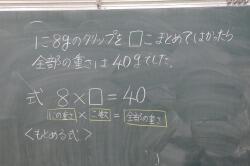 1こ8gのクリップを□こまとめてはかったら
全部の重さは40gでした。
式 8×□=40
1この重さ×こ数=全部の重さ
<もとめる式>